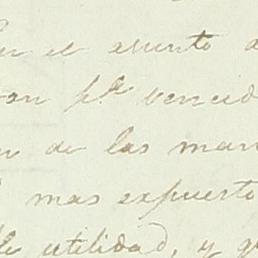 en el asunto d
con p.ª vencid
en de las man
mas expuesto
de utilidad, y q